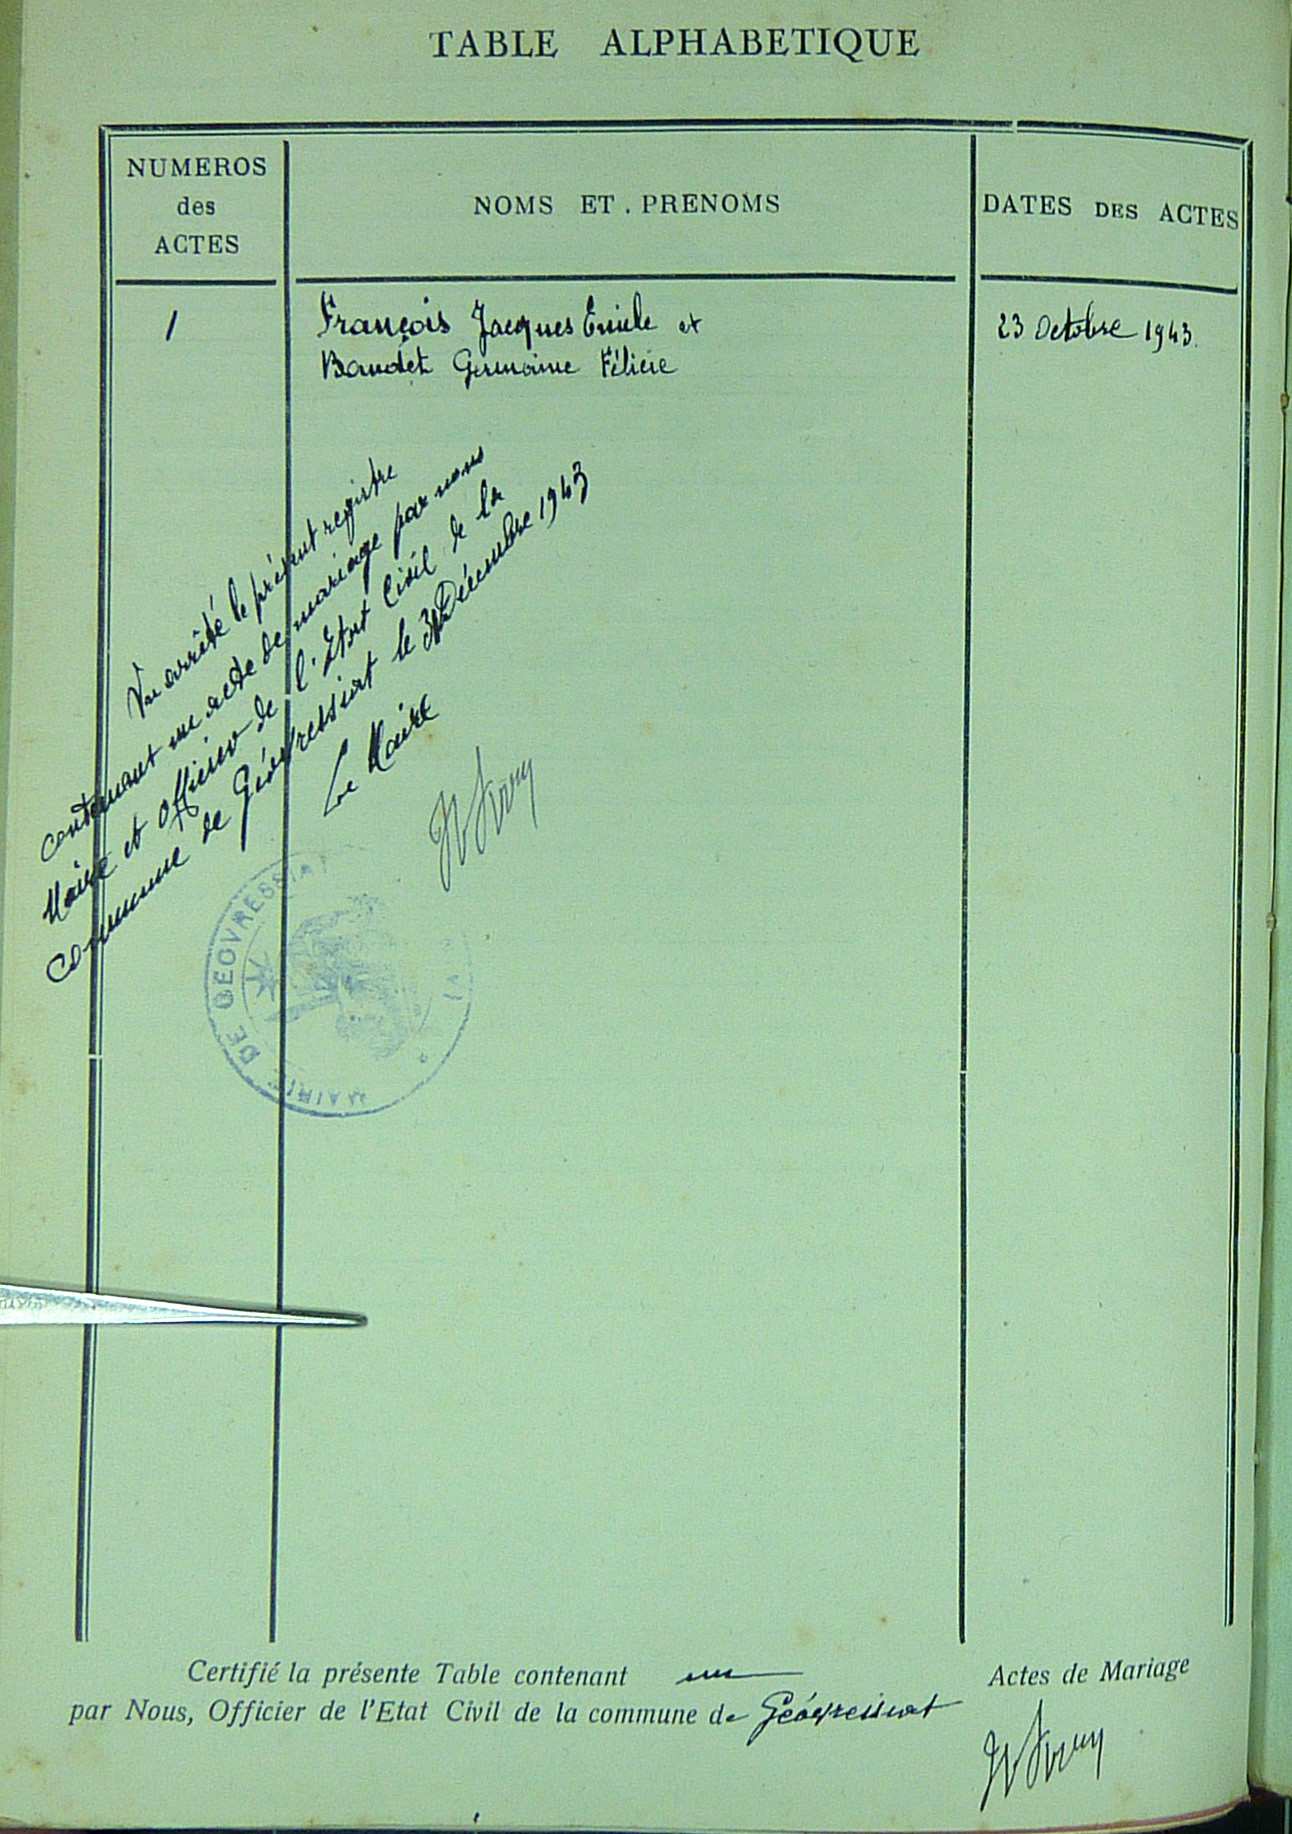 TABLE ALPHABETIQUE
NUMEROS
des
ACTES
NOMS ET. PRENOMS
DATES DES ACTES
1
François Jacques Emile et
Baudet Germaine Félicie
23 Octobre 1943.
Vu arrêté le présent registre
contenant un acte de mariage par nous
Maire et Officier de l'Etat Civil de la
commune de Géovressiat le 31 Décembre 1943
Le Maire
MAIRIE DE GEOVRESSIAT
Certifié la présente Table contenant un Actes de Mariage
par Nous, Officier de l'Etat Civil de la commune de Géovressiat